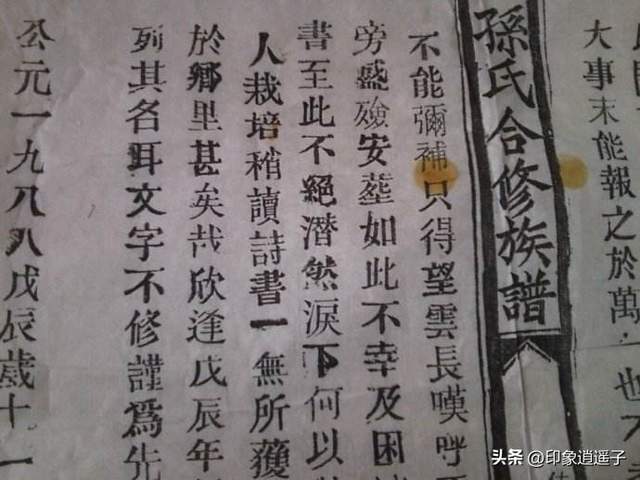 也
大事末能報之於萬
孫氏合修族譜
不能彌補只得望雲長嘆呼
旁盛殮安塟如此不幸及困
書至此不絕潸然淚下何以
人栽培稍讀詩書一無所獲
於鄉里甚矣哉欣逢戊辰年
列其名耳文字不修謹爲先
公元一九八八戊辰歲十一
头条 @印象逍遥子